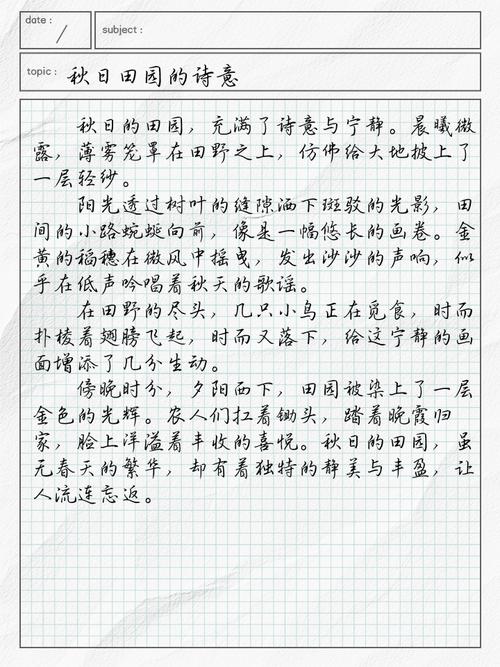 date :
subject :
topic : 秋日田园的诗意
秋日的田园，充满了诗意与宁静。晨曦微
露，薄雾笼罩在田野之上，仿佛给大地披上了
一层轻纱。
阳光透过树叶的缝隙洒下斑驳的光影，田
间的小路蜿蜒向前，像是一幅悠长的画卷。金
黄的稻穗在微风中摇曳，发出沙沙的声响，似
乎在低声吟唱着秋天的歌谣。
在田野的尽头，几只小鸟正在觅食，时而
扑棱着翅膀飞起，时而又落下，给这宁静的画
面增添了几分生动。
傍晚时分，夕阳西下，田园被染上了一层
金色的光辉。农人们扛着锄头，踏着晚霞归
家，脸上洋溢着丰收的喜悦。秋日的田园，虽
无春天的繁华，却有着独特的静美与丰盈，让
人流连忘返。